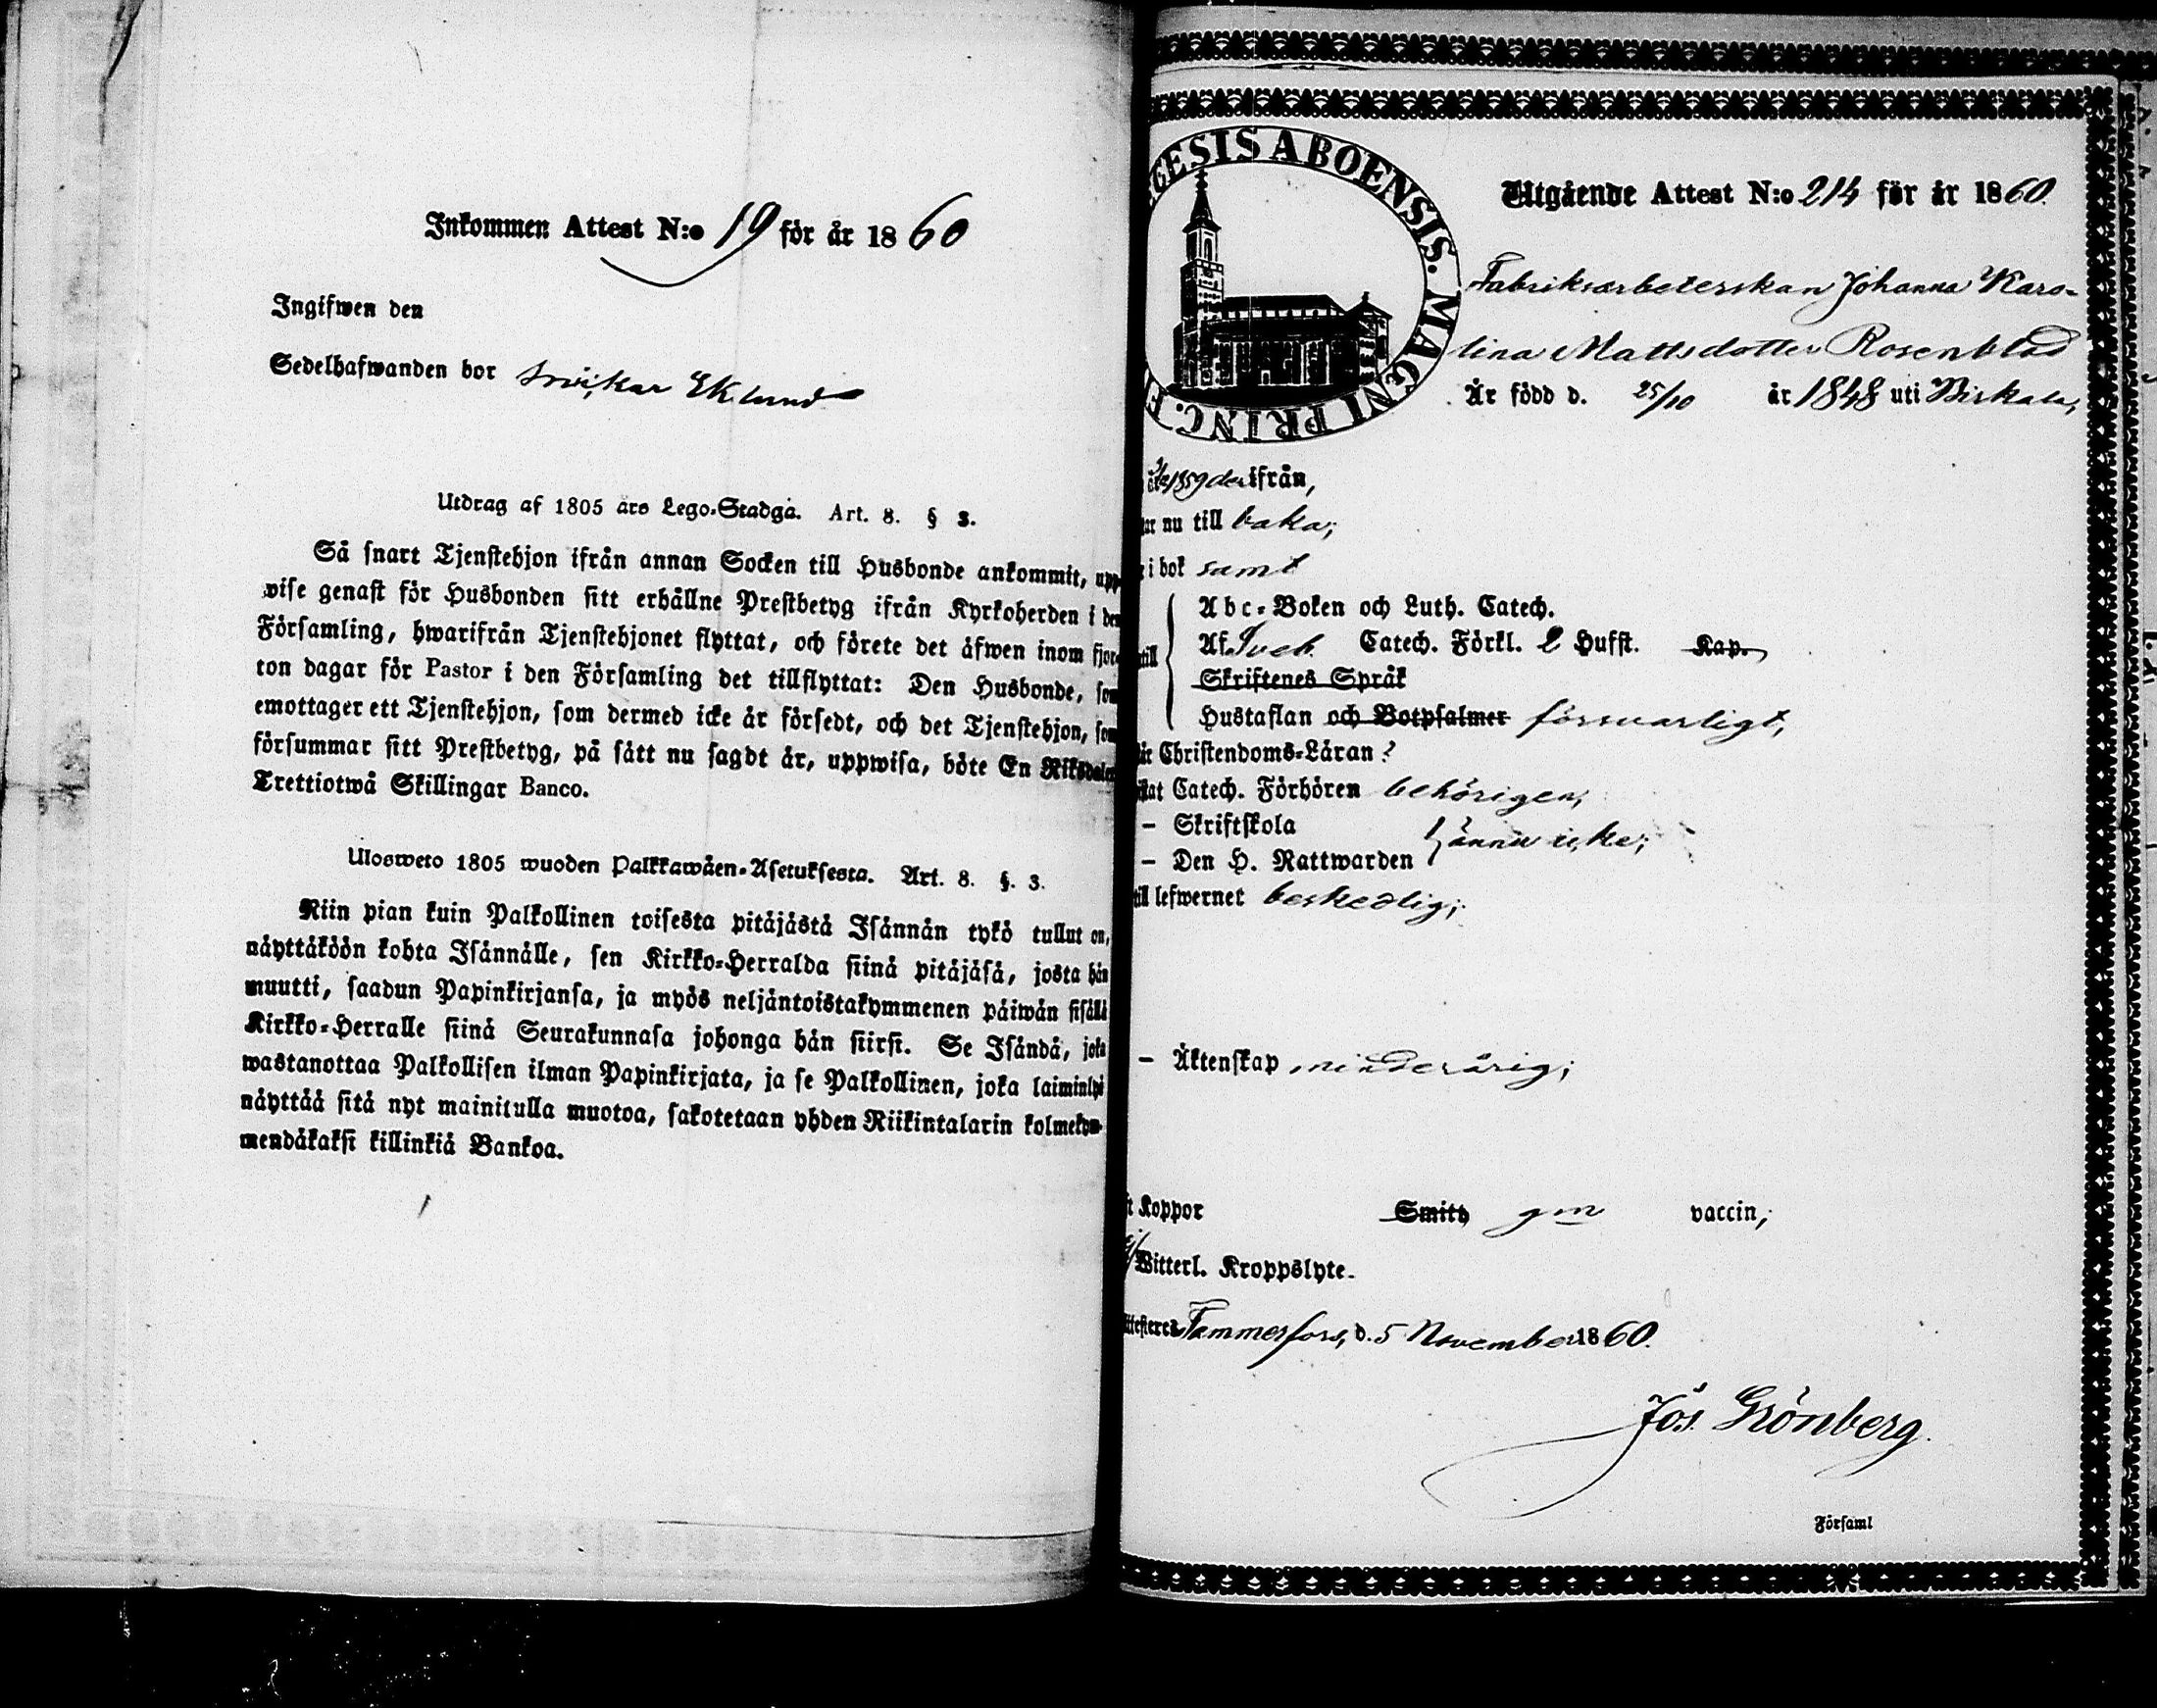 Inkommen Attest N:o 19 för år 1860
Ingifwen den
Sedelhafwanden bor Eklund
Utdrag af 1805 års Lego-Stadga. Art. 8. § 3.
Så snart Tjenstehjon ifrån annan Socken till Husbonde ankommit, upp-
wise genast för Husbonden sitt erhållne Prestbetyg ifrån Kyrkoherden i den
Församling, hwarifrån Tjenstehjonet flyttat, och förete det äfwen inom fjor-
ton dagar för Pastor i den Församling det tillflyttat: Den Husbonde, som
emottager ett Tjenstehjon, som dermed icke är försedt, och det Tjenstehjon, som
försummar sitt Prestbetyg, på sätt nu sagdt är, uppwisa, böte En Riksdaler
Trettiotwå Skillingar Banco.
Ulosweto 1805 wuoden Palkkawäen-Asetuksesta. Art. 8. §. 3.
Niin pian kuin Palkollinen toisesta pitäjästä Isännän tykö tullut on,
näyttäköön kohta Isännälle, sen Kirkko-Herralda siinä pitäjäsä, josta hän
muutti, saadun Papinkirjansa, ja myös neljäntoistakymmenen päiwän sisällä
Kirkko-Herralle siinä Seurakunnasa johonga hän siirsi. Se Isändä, joka
wastanottaa Palkollisen ilman Papinkirjata, ja se Palkollinen, joka laiminlyö
näyttää sitä nyt mainitulla muotoa, sakotetaan yhden Riikintalarin kolmekym-
mendäkaksi killinkiä Bankoa.
CESIS ABOENSIS. MAGNI PRINC. F
Utgående Attest N:o 214 för år 1860.
Fabriksarbeterskan Johanna Karo-
lina Mattsdotter Rosenblad
Är född d. 25/10 år 1848 uti Birkala,
1859 derifrån,
nu till baka;
i bok samt
Abc-Boken och Luth. Catech.
Af Sveb. Catech. Förkl. 2 Hufst. Kap.
till
Skriftenes Språk
Hustaflan och Botpsalmer försvarligt;
Christendoms-Läran ?
Catech. Förhören behörigen,
– Skriftskola
ännu icke;
– Den H. Nattwarden
till lefwernet beskedlig;
– Äktenskap minderårig;
Koppor Smitt gm vaccin;
Witterl. Kroppslyte.
Tammerfors, d. 5 November 1860.
Jos. Grönberg.
Församl